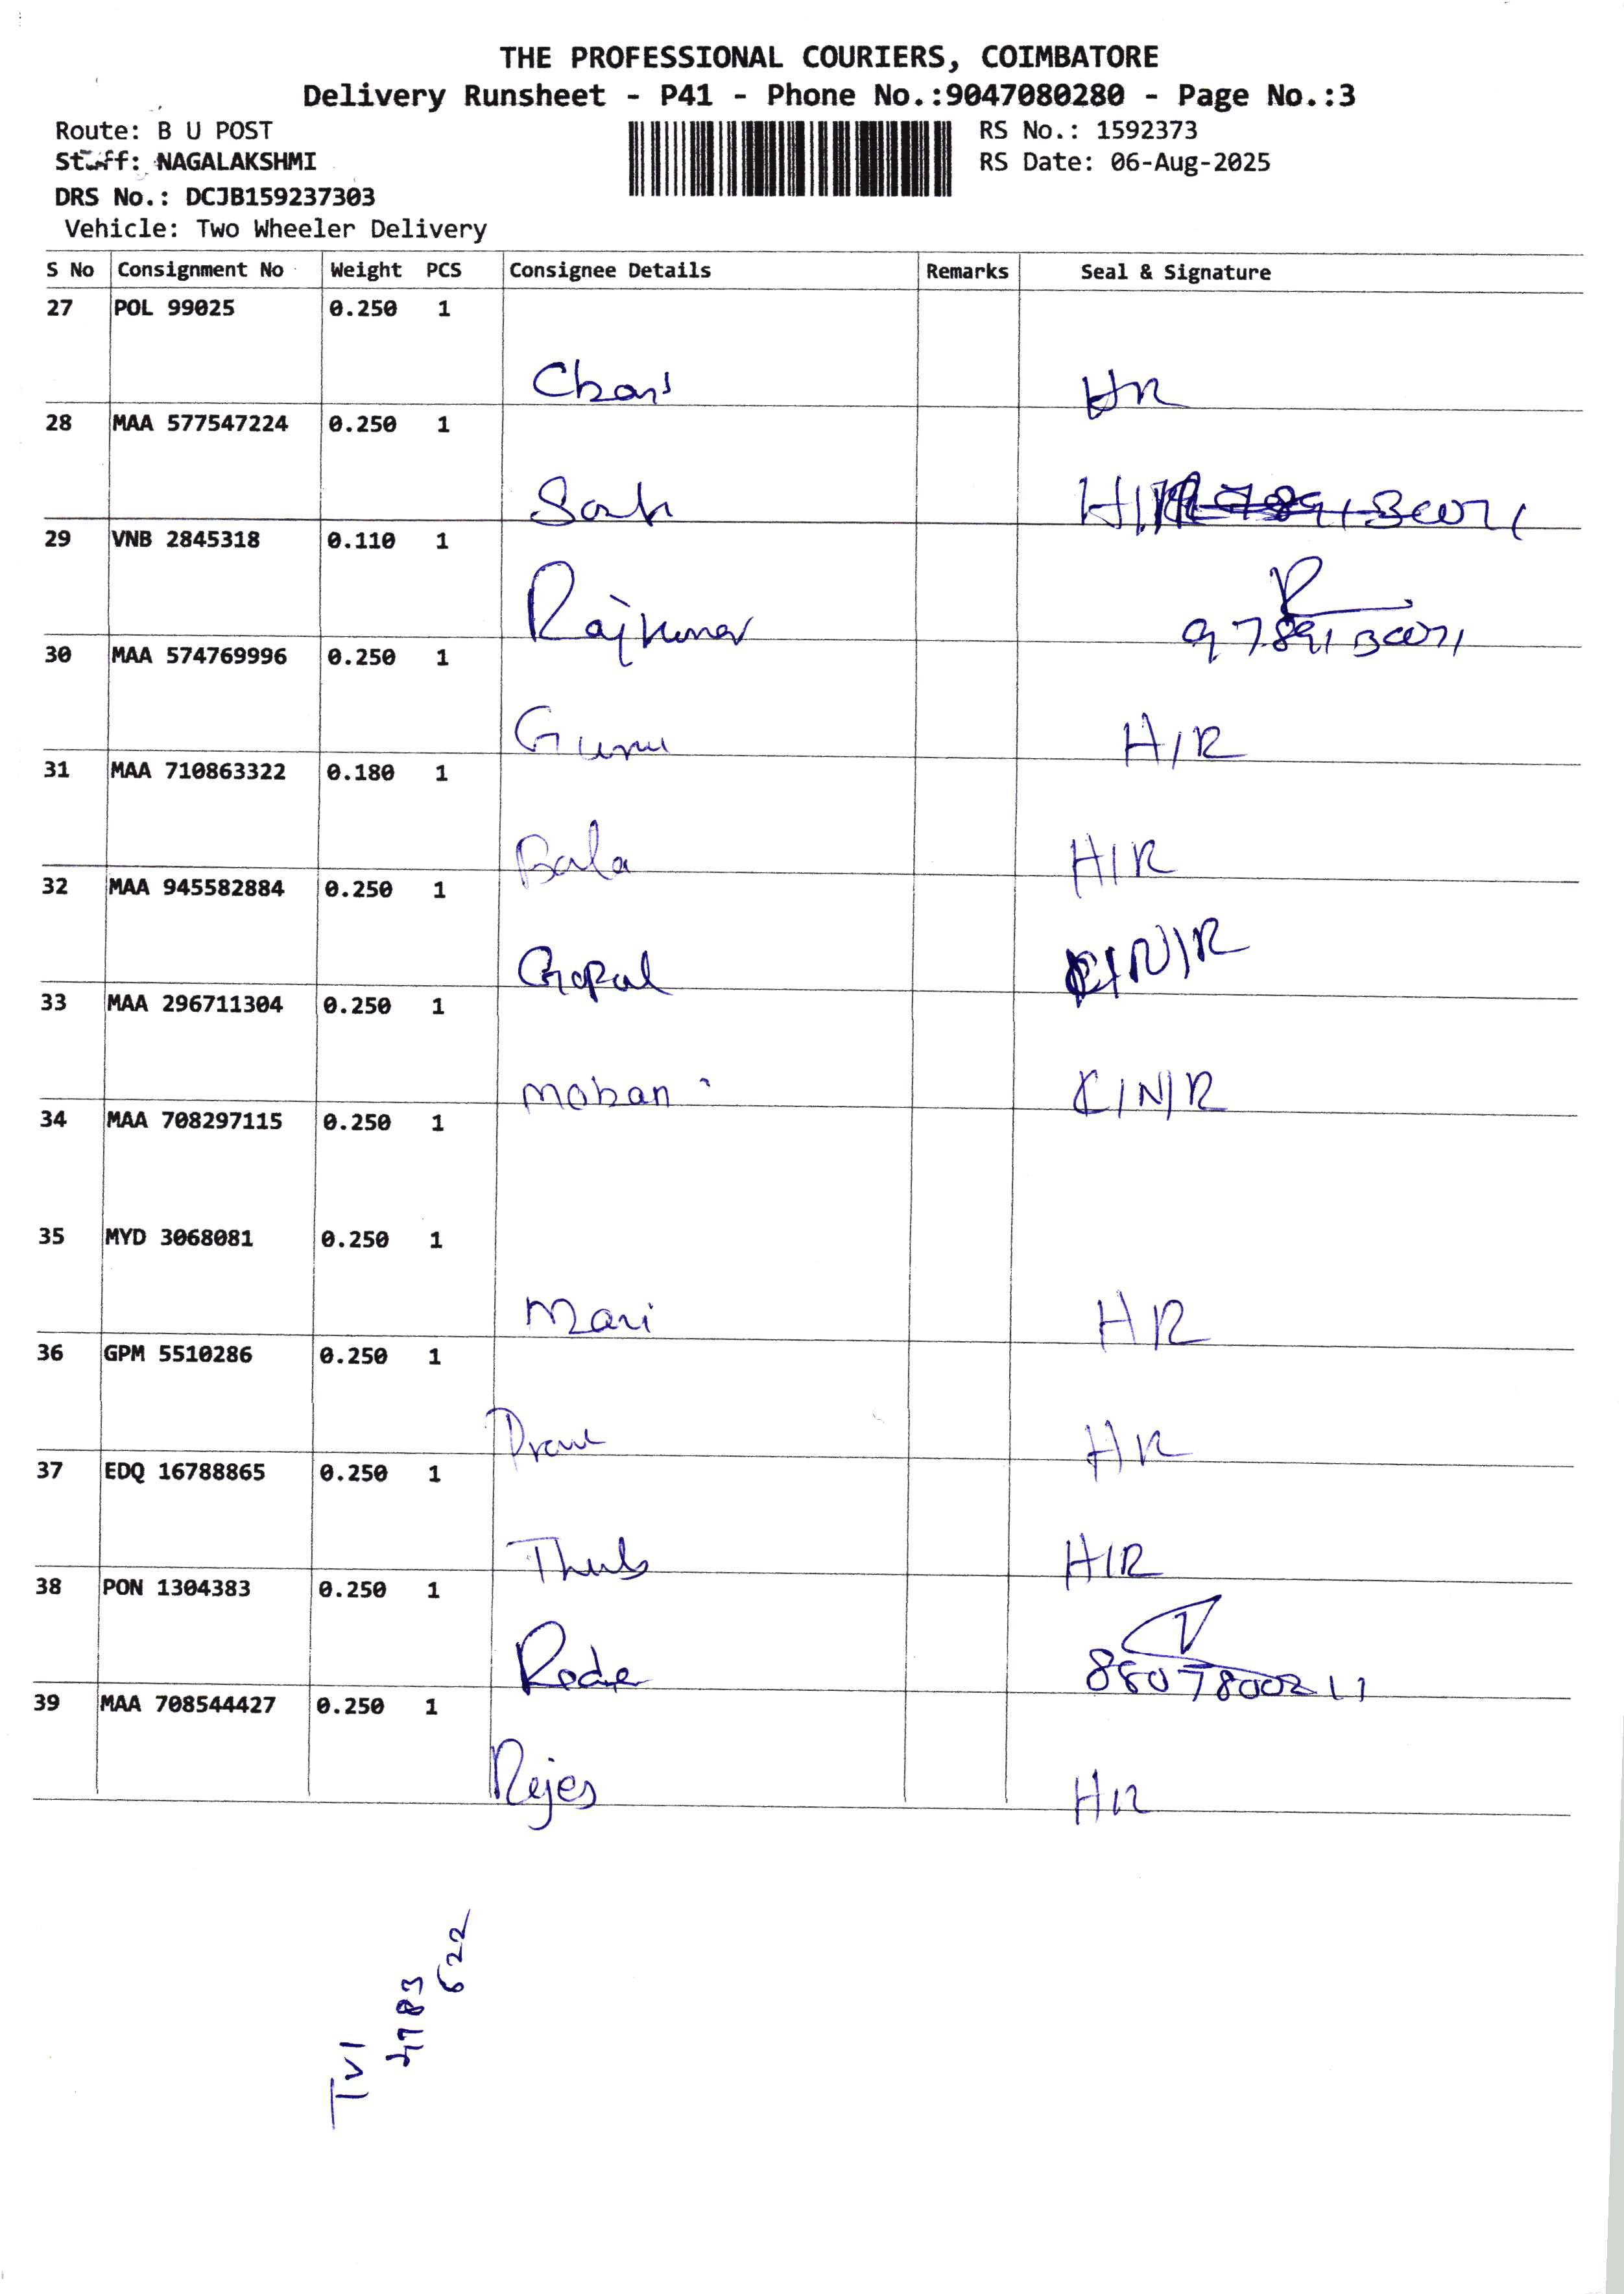 THE PROFESSIONAL COURIERS, COIMBATORE
Delivery Runsheet - P41 - Phone No.:9047080280 - Page No.:3
Route: B U POST
RS No.: 1592373
Staff: NAGALAKSHMI
RS Date: 06-Aug-2025
DRS No.: DCJB159237303
Vehicle: Two Wheeler Delivery
S No Consignment No Weight PCS Consignee Details Remarks Seal & Signature
27 POL 99025 0.250 1
HR
28 MAA 577547224 0.250 1
29 VNB 2845318 0.110 1
Rajkumar
30 MAA 574769996 0.250 1
Guru H/R
31 MAA 710863322 0.180 1
Bala H/R
32 MAA 945582884 0.250 1
Gopal C/N/R
33 MAA 296711304 0.250 1
Mohan C/N/R
34 MAA 708297115 0.250 1
35 MYD 3068081 0.250 1
Mari HR
36 GPM 5510286 0.250 1
HR
37 EDQ 16788865 0.250 1
H/R
38 PON 1304383 0.250 1
39 MAA 708544427 0.250 1
Rejes HR
TVI
4783
622